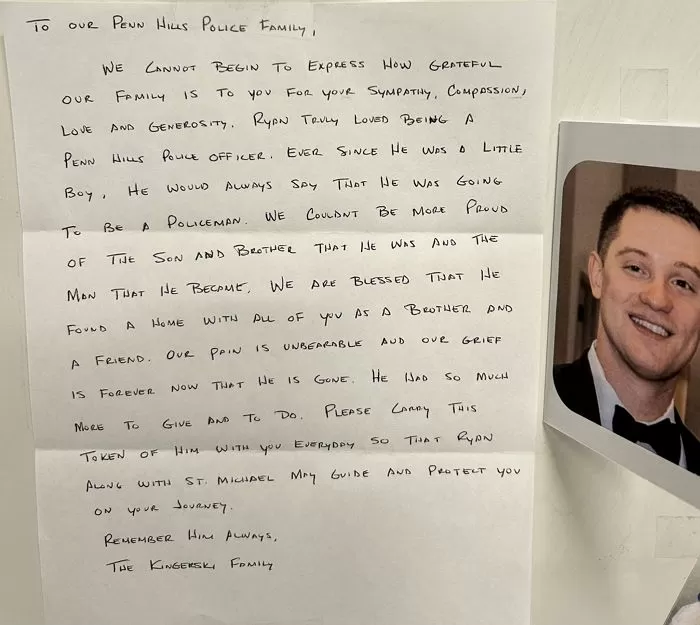 TO OUR PENN HILLS POLICE FAMILY,
WE CANNOT BEGIN TO EXPRESS HOW GRATEFUL
OUR FAMILY IS TO YOU FOR YOUR SYMPATHY, COMPASSION,
LOVE AND GENEROSITY. RYAN TRULY LOVED BEING A
PENN HILLS POLICE OFFICER. EVER SINCE HE WAS A LITTLE
BOY, HE WOULD ALWAYS SAY THAT HE WAS GOING
TO BE A POLICEMAN. WE COULDNT BE MORE PROUD
OF THE SON AND BROTHER THAT HE WAS AND THE
MAN THAT HE BECAME. WE ARE BLESSED THAT HE
FOUND A HOME WITH ALL OF YOU AS A BROTHER AND
A FRIEND. OUR PAIN IS UNBEARABLE AND OUR GRIEF
IS FOREVER NOW THAT HE IS GONE. HE HAD SO MUCH
MORE TO GIVE AND TO DO. PLEASE CARRY THIS
TOKEN OF HIM WITH YOU EVERYDAY SO THAT RYAN
ALONG WITH ST. MICHAEL MAY GUIDE AND PROTECT YOU
ON YOUR JOURNEY.
REMEMBER HIM ALWAYS,
THE KINGERSKI FAMILY